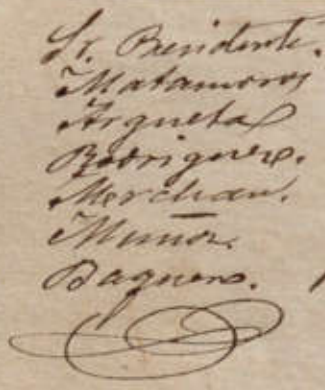 Sr. Presidente.
Matamoros
Argueta
Rodriguez.
Merchan.
Munoz.
Baquero.